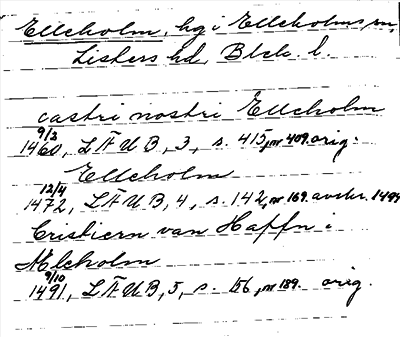 Ellcholm, hg i Ellcholms sn,
Listers hd, Blek. l.
castri nostri Ellcholm
9/2 1460, LÄUB, 3, s. 415, nr 409. orig.
Ellcholm
12/4 1472, LÄUB, 4, s. 142, nr 169. avskr. 1494
Cristiern van Haffn i
Alcholm
9/10 1491, LÄUB, 5, s. 156, nr 189. orig.